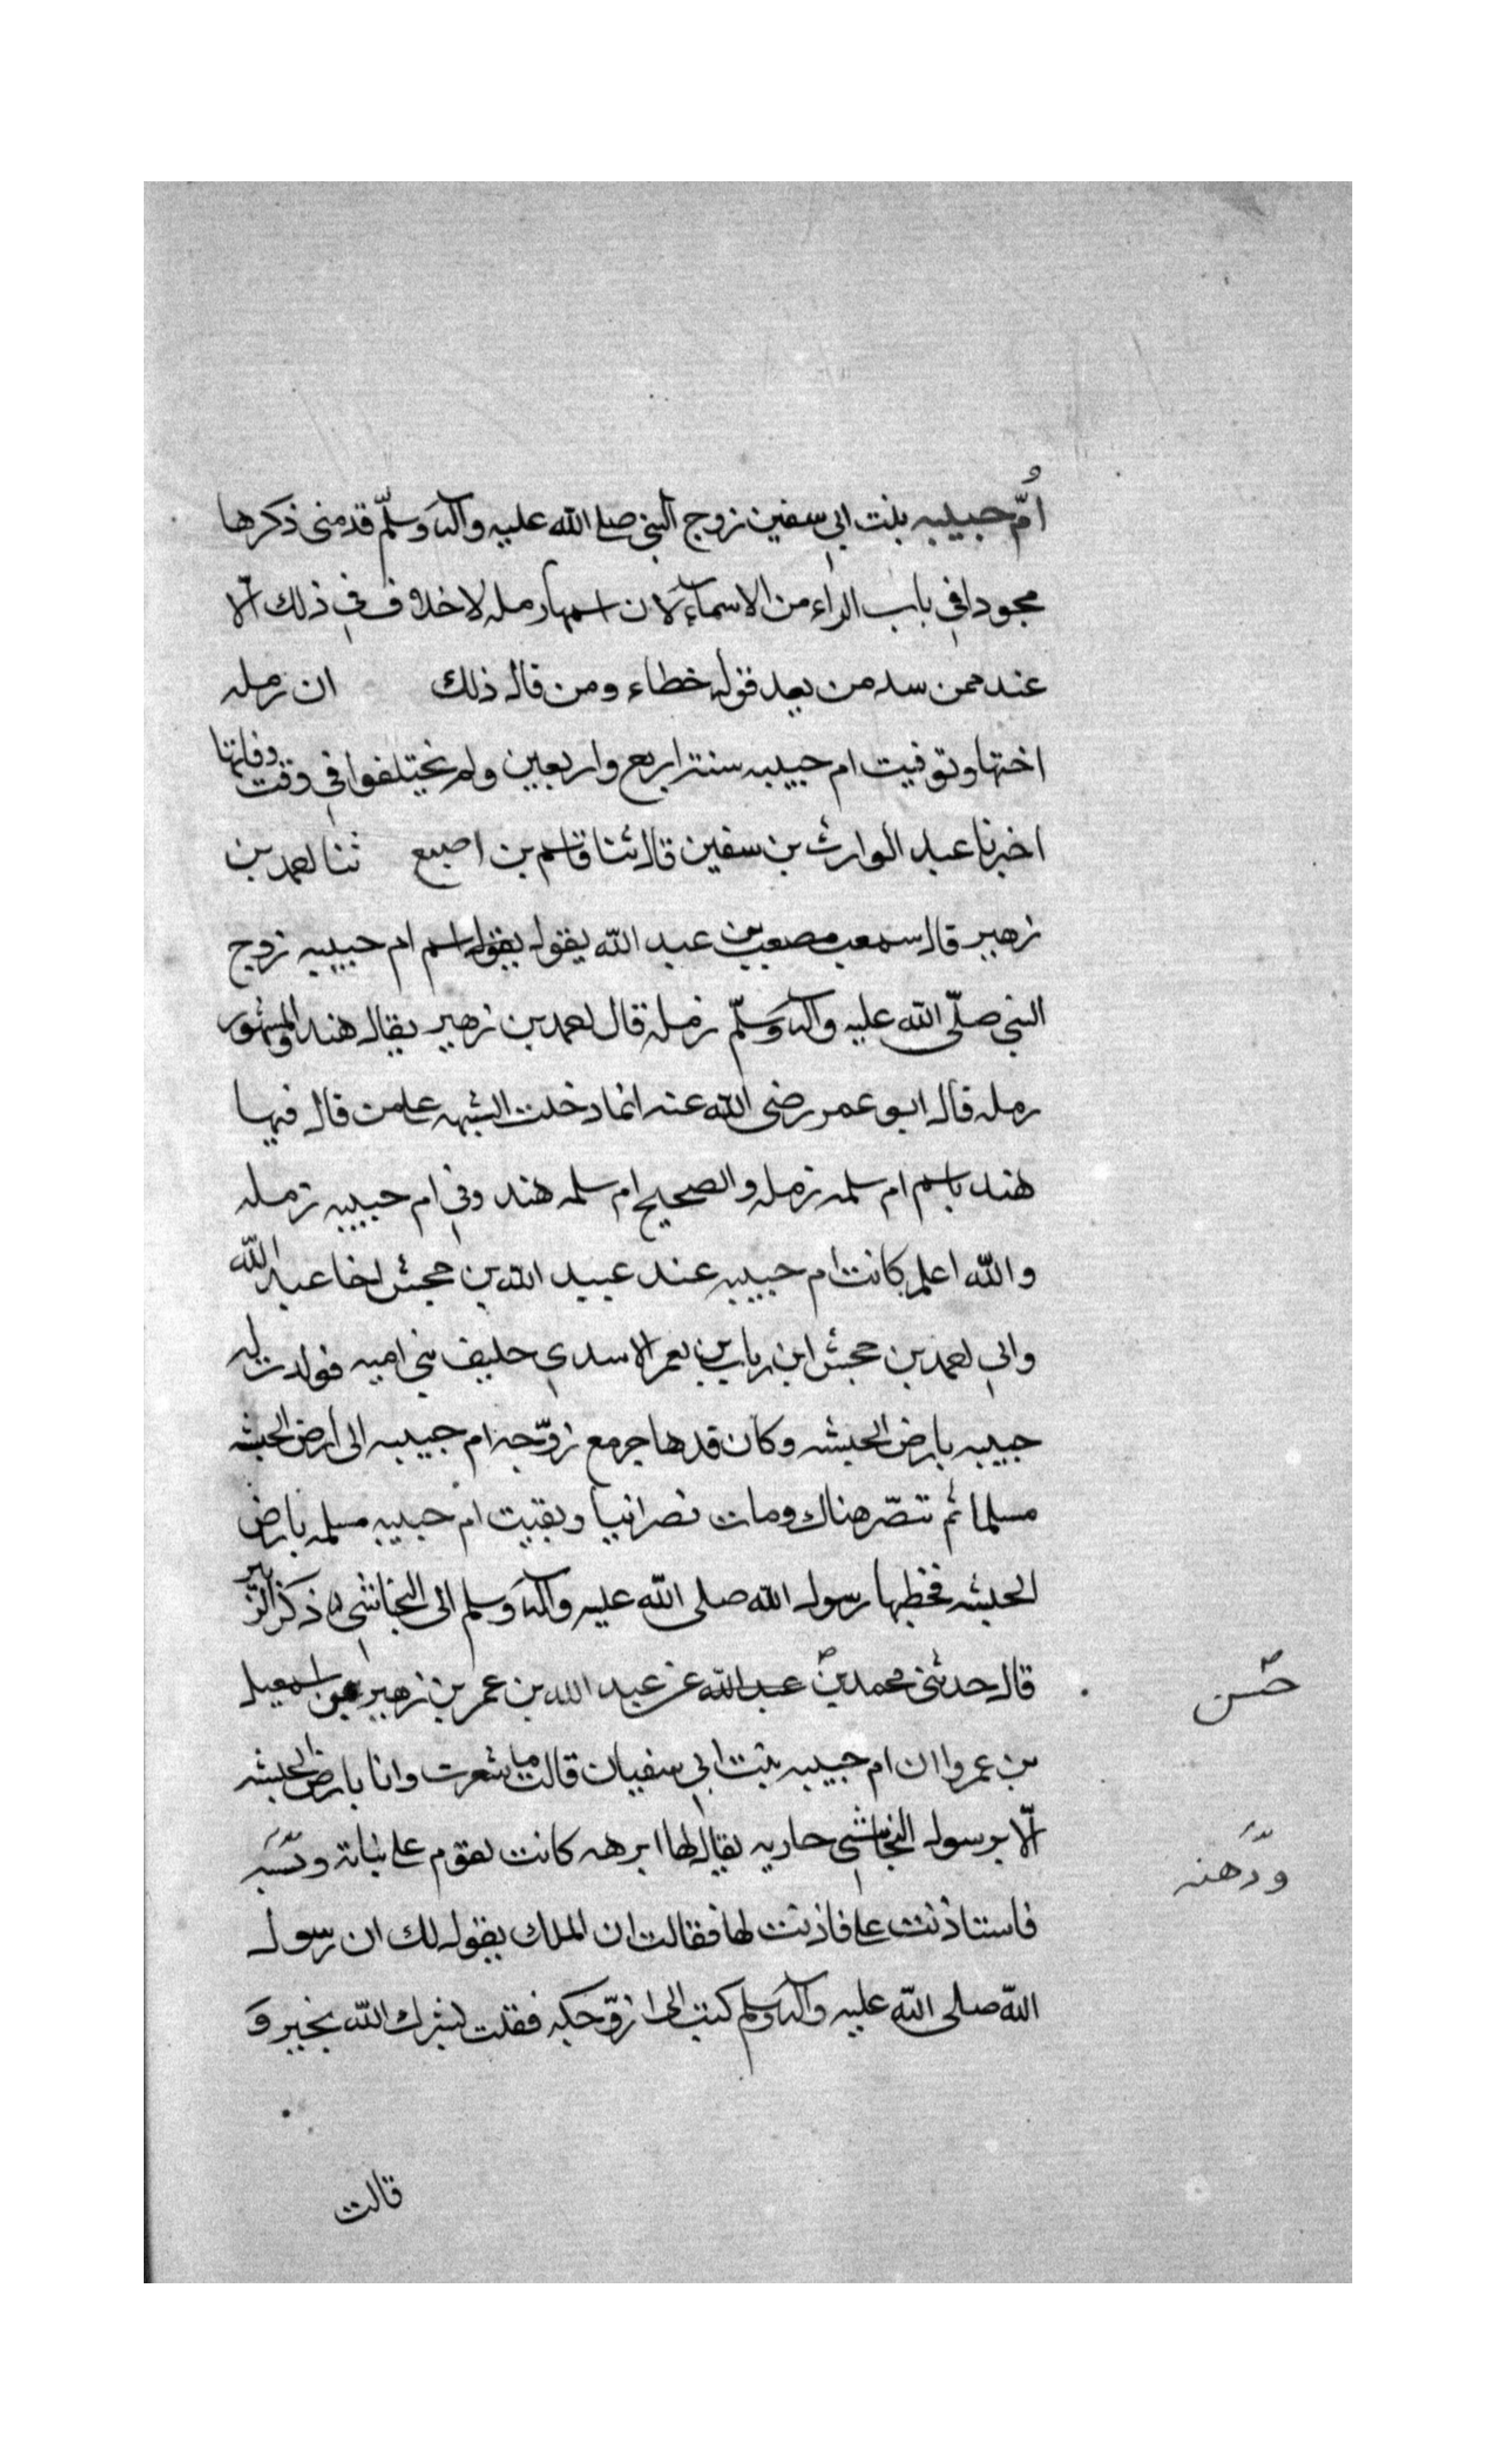 اُمّ حبيبه بنت ابي سفين زوج النبي صلى الله عليه وآله وسلّم قد مضى ذكرها
مجودا في باب الراء من الاسماء لان اسمها رمله لا خلاف في ذلك الا
عند ممن سد من يعد قوله خطاء ومن قال ذلك ان رمله
اختها وتوفيت ام حبيبه سنة اربع واربعين ولم يختلفوا في وقت وفاتها
اخبرنا عبد الوارث بن سفين قال ثنا قاسم بن اصبع ثنا احمد بن
زهير قال سمعت مصعب بن عبد الله يقول يقول اسم ام حبيبه زوج
النبي صلّى الله عليه وآله وسلّم رمله قال احمد بن زهير يقال هند والمشهور
رمله قال ابو عمر رضى الله عنه انما دخلت الشبهه على من قال فيها
هند باسم ام سلمه رمله والصحيح ام سلمه هند وفي ام حبيبه رمله
والله اعلم كانت ام حبيبه عند عبيد الله بن جحش اخا عبد الله
وابي احمد بن جحش ابن رياب بن يعمر الاسدي حليف بني اميه فولدت له
حبيبه بارض الحبشه وكان قد هاجر مع زوّجه ام حبيبه الى أرض الحبشه
مسلما ثم تنصّر هناك ومات نصرانيا وبقيت ام حبيبه مسلمه بارض
الحبشه فخطبها رسول الله صلى الله عليه وآله وسلم الى النجاشي ذكر الزبير
قال حدثني محمد بن عبد الله عن عبد الله بن عمر بن زهير عن اسمعيل
حسن
بن عمرو ان ام حبيبه بنت ابي سفيان قالت ما شعرت وانا بارض الحبشه
الّا برسول النجاشي جاريه يقال لها ابرهه كانت تقوم على ثيابه و
ودهنه
فاستاذنت على فاذنت لها فقالت ان الملك يقول لك ان رسول
الله صلى الله عليه وآله وسلم كتب الى ا زوّجكه فقلت بشرك الله بخير و
قالت